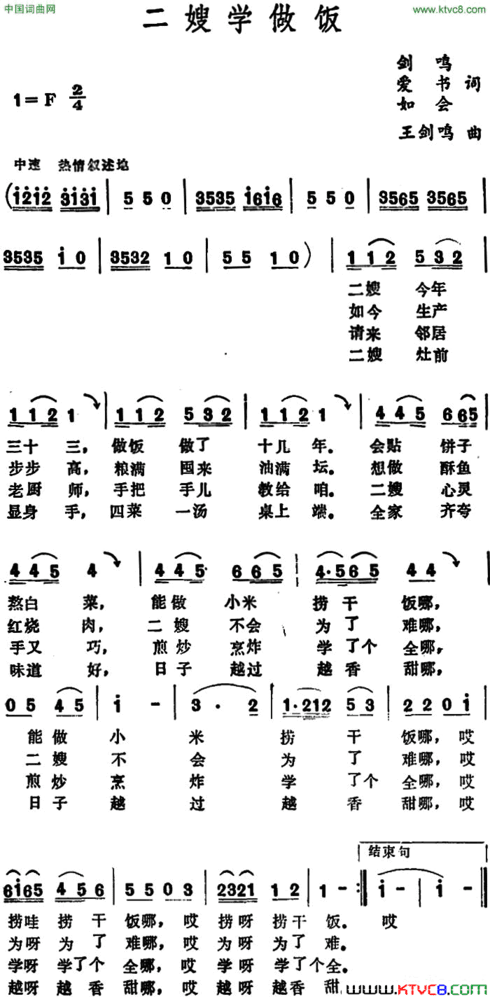 中国词曲网
www.ktvc8.com
二嫂学做饭
剑鸣
爱书词
如会
1=F 2/4
王剑鸣 曲
中速 热情叙述地
(i2i2 3i3i | 5 5 0 | 3535 i6i6 | 5 5 0 | 3565 3565 |
3535 i 0 | 3532 1 0 | 5 5 1 0 ) | 1 1 2 5 3 2 |
二嫂 今年
如今 生产
请来 邻居
二嫂 灶前
1 1 2 1 | 1 1 2 5 3 2 | 1 1 2 1 | 4 4 5 6 6 5 |
三十三，做饭 做了 十几 年。会贴 饼子
步步高，粮满 囤来 油满 坛。想做 酥鱼
老厨师，手把 手儿 教给 咱。二嫂 心灵
显身手，四菜 一汤 桌上 端。全家 齐夸
4 4 5 4 | 4 4 5 6 6 5 | 4·5 6 5 | 4 4 0 |
熬白 菜，能做 小米 捞干 饭哪，
红烧 肉，二嫂 不会 为了 难哪，
手又 巧，煎炒 烹炸 学了个 全哪，
味道 好，日子 越过 越香 甜哪，
0 5 4 5 | i - | 3 · 2 | 1·2 1 2 5 3 | 2 2 0 i |
能做 小 米 捞 干 饭哪，哎
二嫂 不 会 为 了 难哪，哎
煎炒 烹 炸 学 了个 全哪，哎
日子 越 过 越 香 甜哪，哎
结束句
6i65 4 5 6 | 5 5 0 3 | 2321 1 2 | 1 - :‖ i - | i - ‖
捞哇 捞干 饭哪，哎 捞呀 捞干 饭。哎
为呀 为了 难哪，哎 为呀 为了 难。
学呀 学了个 全哪，哎 学呀 学了个 全。
越呀 越香 甜哪，哎 越呀 越香 甜。
www.KTVC8.com